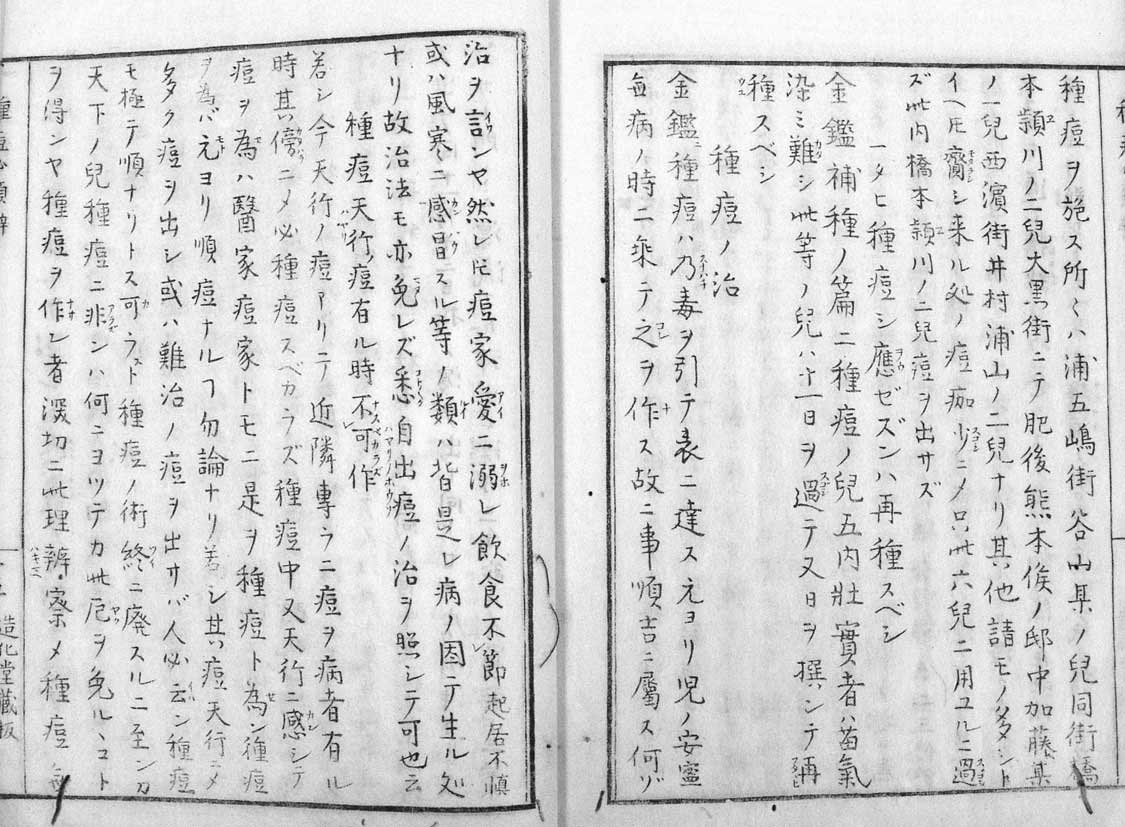 種痘ヲ施ス所々ハ浦五嶋街谷山某ノ兒同街橋
本頴川ノ二兒大黒街ニテ肥後熊本侯ノ邸中加藤某
ノ一兒西濱街井村浦山ノ二兒ナリ其他請モノ多シト
イヘ𪜈齎シ来ル処ノ痘痂少ニメ只此六兒ニ用ユルニ過
ズ此内橋本頴川ノ二兒痘ヲ出サズ
一タヒ種痘シ應ゼズンハ再種スベシ
金鑑補種ノ篇ニ種痘ノ兒五内壯實者ハ苗氣
染ミ難シ此等ノ兒ハ十一日ヲ過テ又日ヲ撰ンテ再
種スベシ
種痘ノ治
金鑑ニ種痘ハ乃毒ヲ引テ表ニ達ス元ヨリ児ノ安寧
無病ノ時ニ乘テ之ヲ作ス故ニ事順吉ニ屬ス何ゾ
治ヲ訁ンヤ然レ𪜈痘家愛ニ溺レ飲食不節起居不慎
或ハ風寒ニ感冒スル等ノ類ハ皆是レ病ノ因テ生ル処
ナリ故治法モ亦免レズ悉自出痘ノ治ヲ照シテ可也云
種痘天行痘有ル時不可作
若シ今天行ノ痘アリテ近隣專ラニ痘ヲ病者有ル
時其傍ニメ必種痘スベカラズ種痘中又天行ニ感シテ
痘ヲ為ハ醫家痘家トモニ是ヲ種痘ト為ン種痘
ヲ為バ元ヨリ順痘ナルヿ勿論ナリ若シ其痘天行ニメ
多ク痘ヲ出シ或ハ難治ノ痘ヲ出サバ人必云ン種痘
モ極テ順ナリトス可ラスト種痘ノ術終ニ廃スルニ至ン刀
天下ノ兒種痘ニ非ンハ何ニヨツテカ此厄ヲ免ルヽコト
ヲ得ンヤ種痘ヲ作ン者深切ニ此理辨察メ種痘無
造化堂藏板